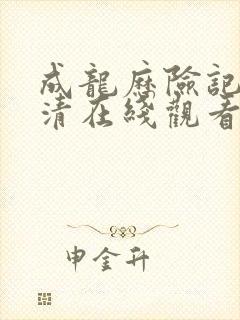 成龍歷險記
清在綫觀看
申金升